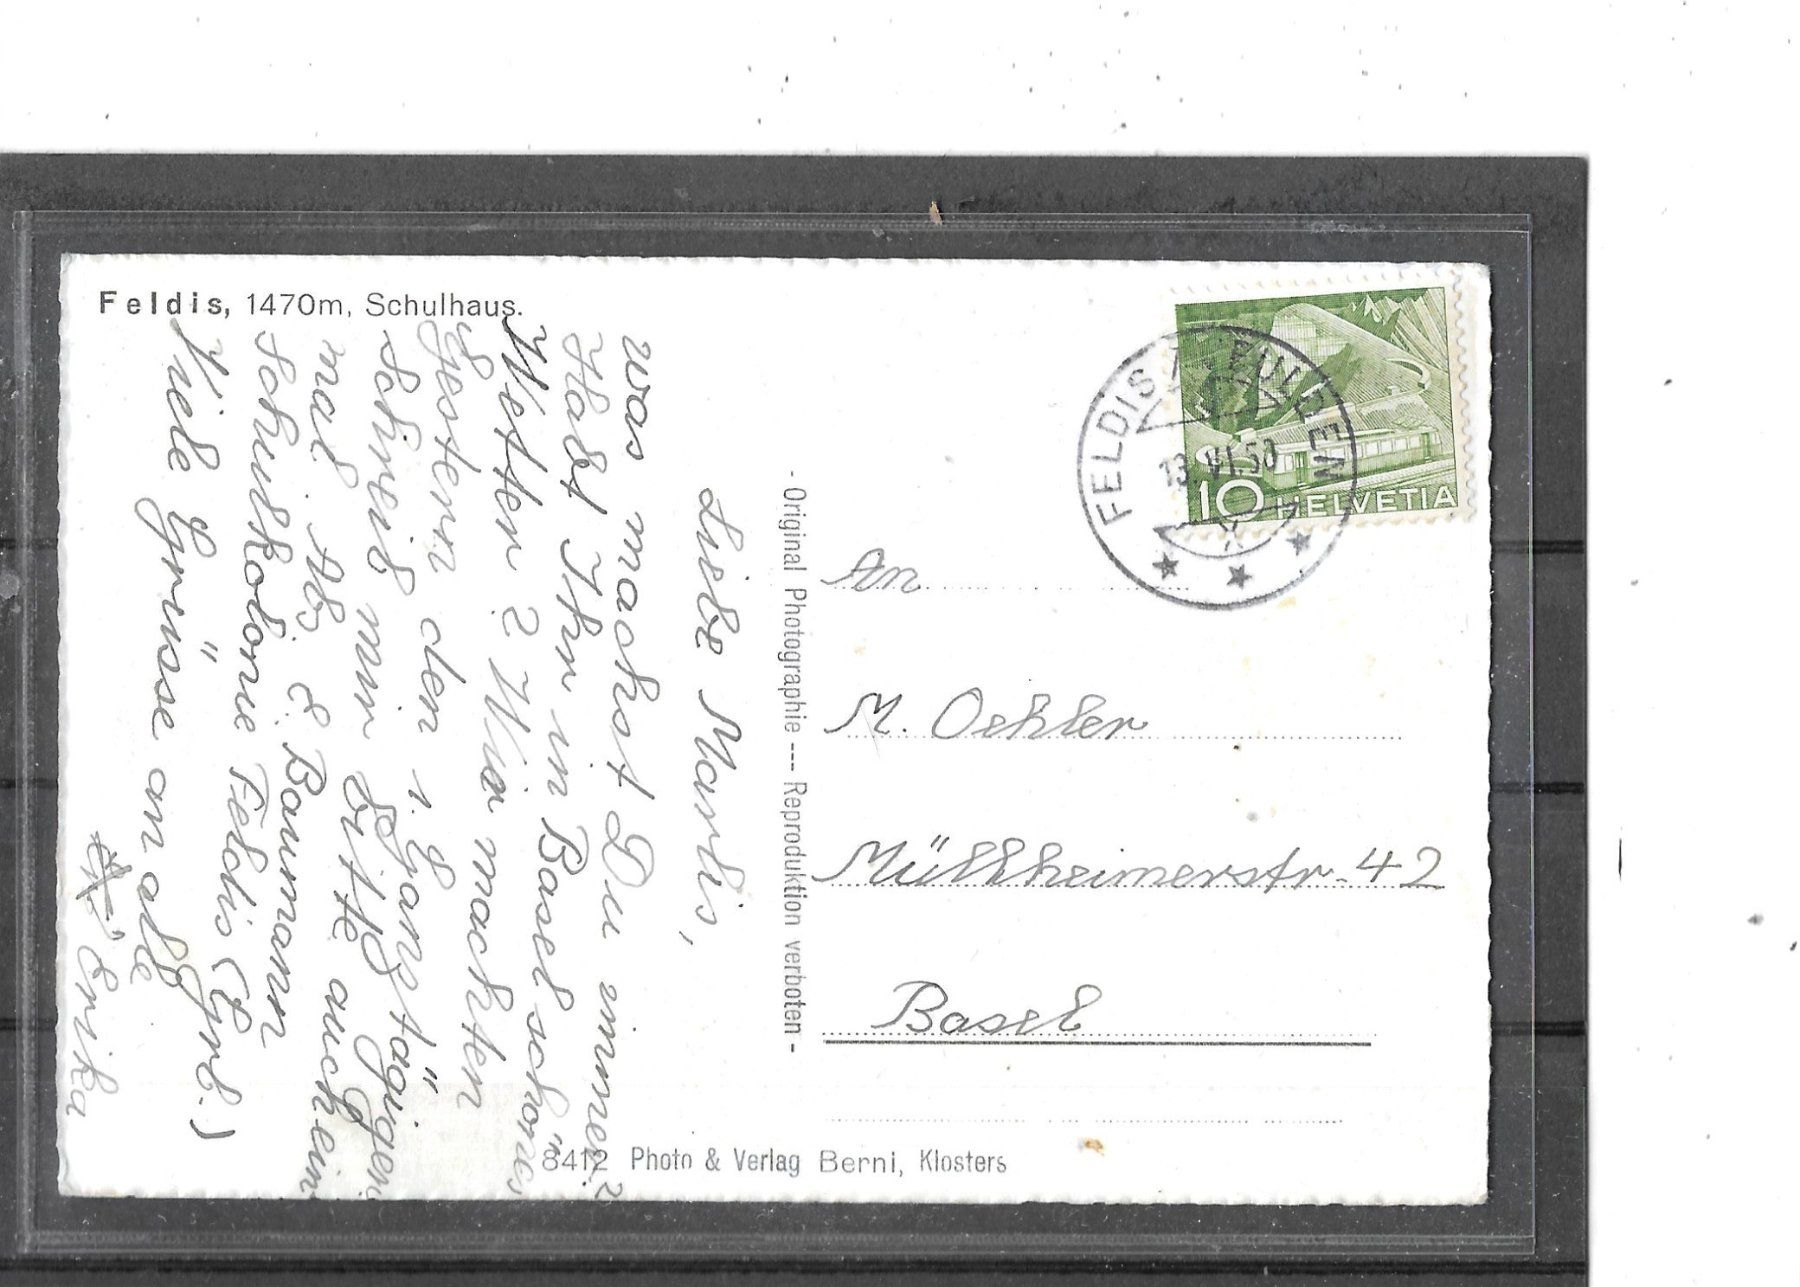 Feldis, 1470m, Schulhaus.
Liebe Marlis,
was machst Du immer?
Habt Ihr in Basel schönes
Wetter? Wir machten
Gestern den 1. Ganztägigen.
Schreib mir bitte auch ein
mal. Abs E. Baumann
Schulkolonie Feldis (Grb.)
Viele Grüsse an alle
Erika
- Original Photographie --- Reproduktion verboten -
FELDIS / VEULDEN
13.VI.50
10 HELVETIA
An
M. Oehler
Müllheimerstr. 42
Basel
8412 Photo & Verlag Berni, Klosters